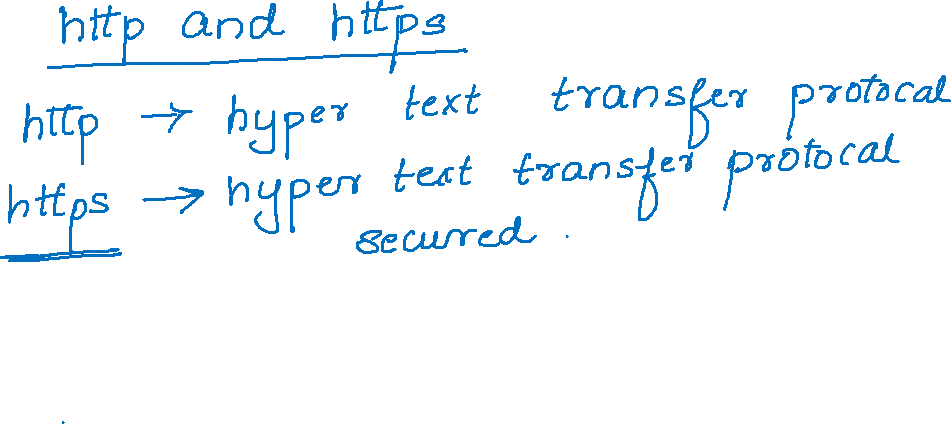 http and https
http → hyper text transfer protocal
https → hyper text transfer protocal
secured .